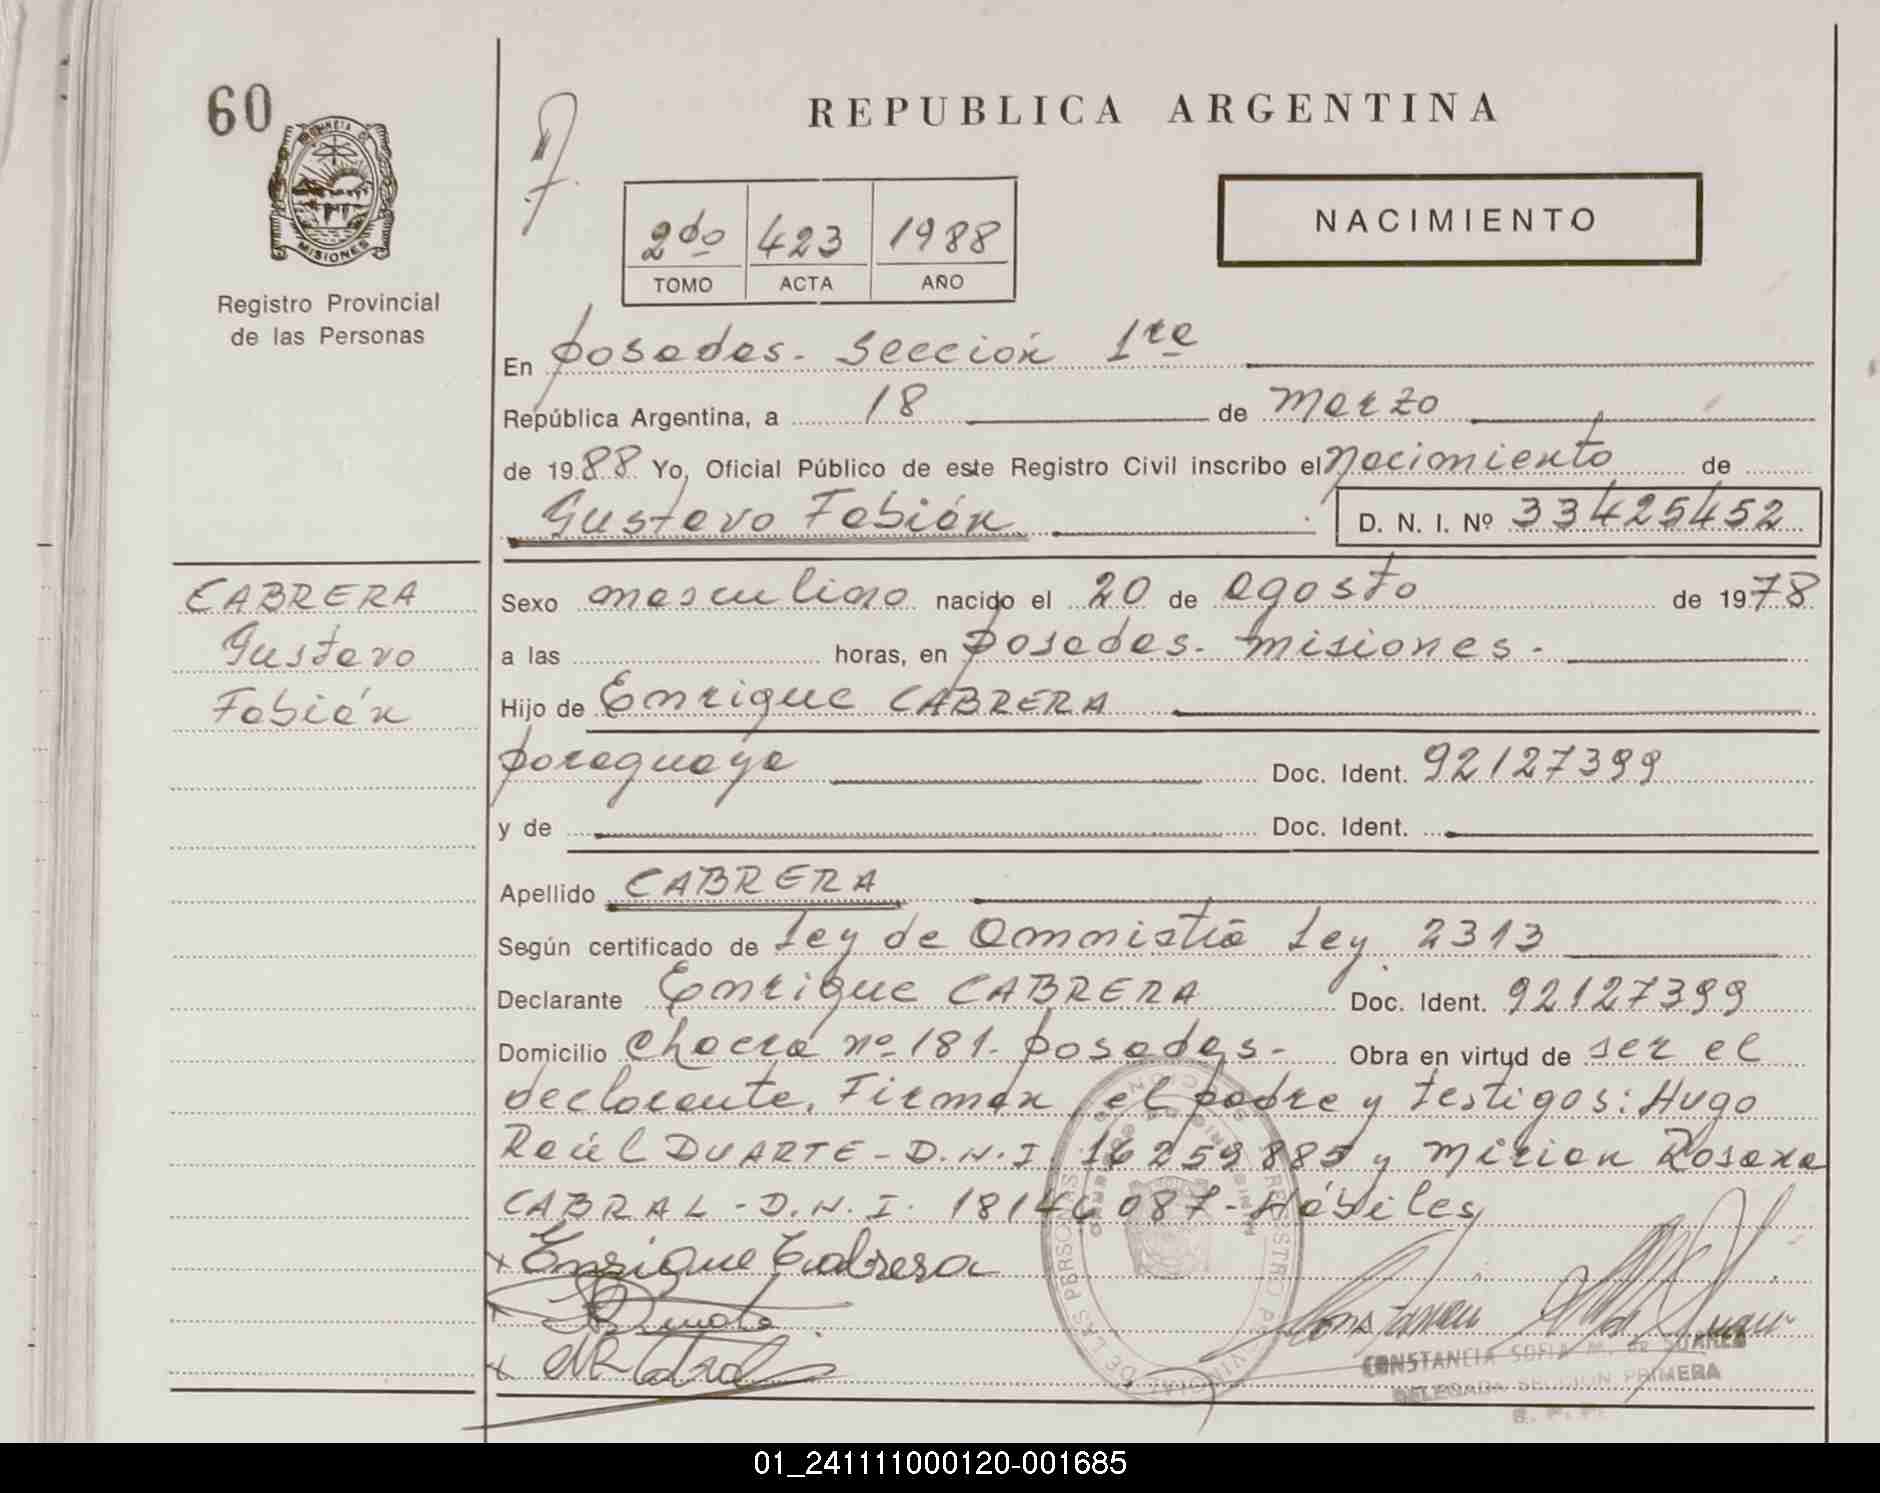 60
PROVINCIA DE
MISIONES
Registro Provincial
de las Personas
REPUBLICA ARGENTINA
NACIMIENTO
2do 423 1988
TOMO ACTA AÑO
En Posadas. Sección 1ra
República Argentina, a 18 de Marzo
de 1988 Yo, Oficial Público de este Registro Civil inscribo el Nacimiento de
Gustavo Fabián D. N. I. Nº 33425452
CABRERA
Gustavo
Fabián
Sexo masculino nacido el 20 de agosto de 1978
a las horas, en Posadas. Misiones.
Hijo de Enrique CABRERA
paraguaya Doc. Ident. 92127399
y de Doc. Ident.
Apellido CABRERA
Según certificado de Ley de Ammistía Ley 2313
Declarante Enrique CABRERA Doc. Ident. 92127399
Domicilio Chacra nº 181. Posadas. Obra en virtud de ser el
declarante. Firman, el padre y testigos: Hugo
Raúl DUARTE - D.N.I. 16259885 y Mirian Rosana
CABRAL - D.N.I. 18146087 - Hábiles
x Enrique Cabrera
CONSTANCIA SOFIA M. de SUAREZ
DELEGADA SECCION PRIMERA
R. P. P.
REGISTRO PROVINCIAL DE LAS PERSONAS
01_241111000120-001685